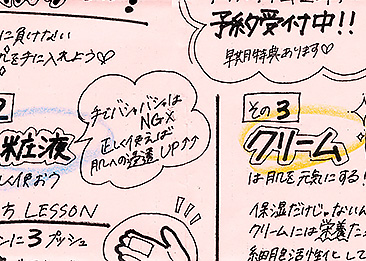 に負けない
を手に入れよう♡
予約受付中!!
早期特典あります♡
2
粧液
手でバシャバシャは
NG×
正しく使えば
肌への浸透UP↑↑
しく使おう
方 LESSON
ンに3プッシュ
その3
クリーム
は肌を元気にする!
保湿だけじゃないん
クリームには栄養た
細胞活性化して